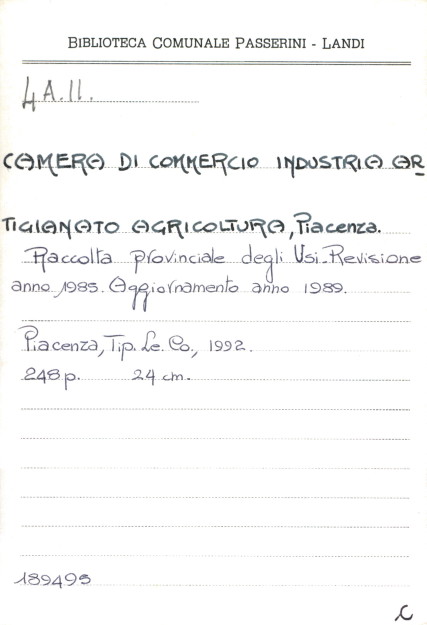 BIBLIOTECA COMUNALE PASSERINI - LANDI
4A.11.
CAMERA DI COMMERCIO INDUSTRIA AR
TIGIANATO AGRICOLTURA, Piacenza.
Raccolta provinciale degli Usi. Revisione
anno 1985. Aggiornamento anno 1989.
Piacenza, Tip. Le. Co., 1992.
248 p. 24 cm.
189495
C